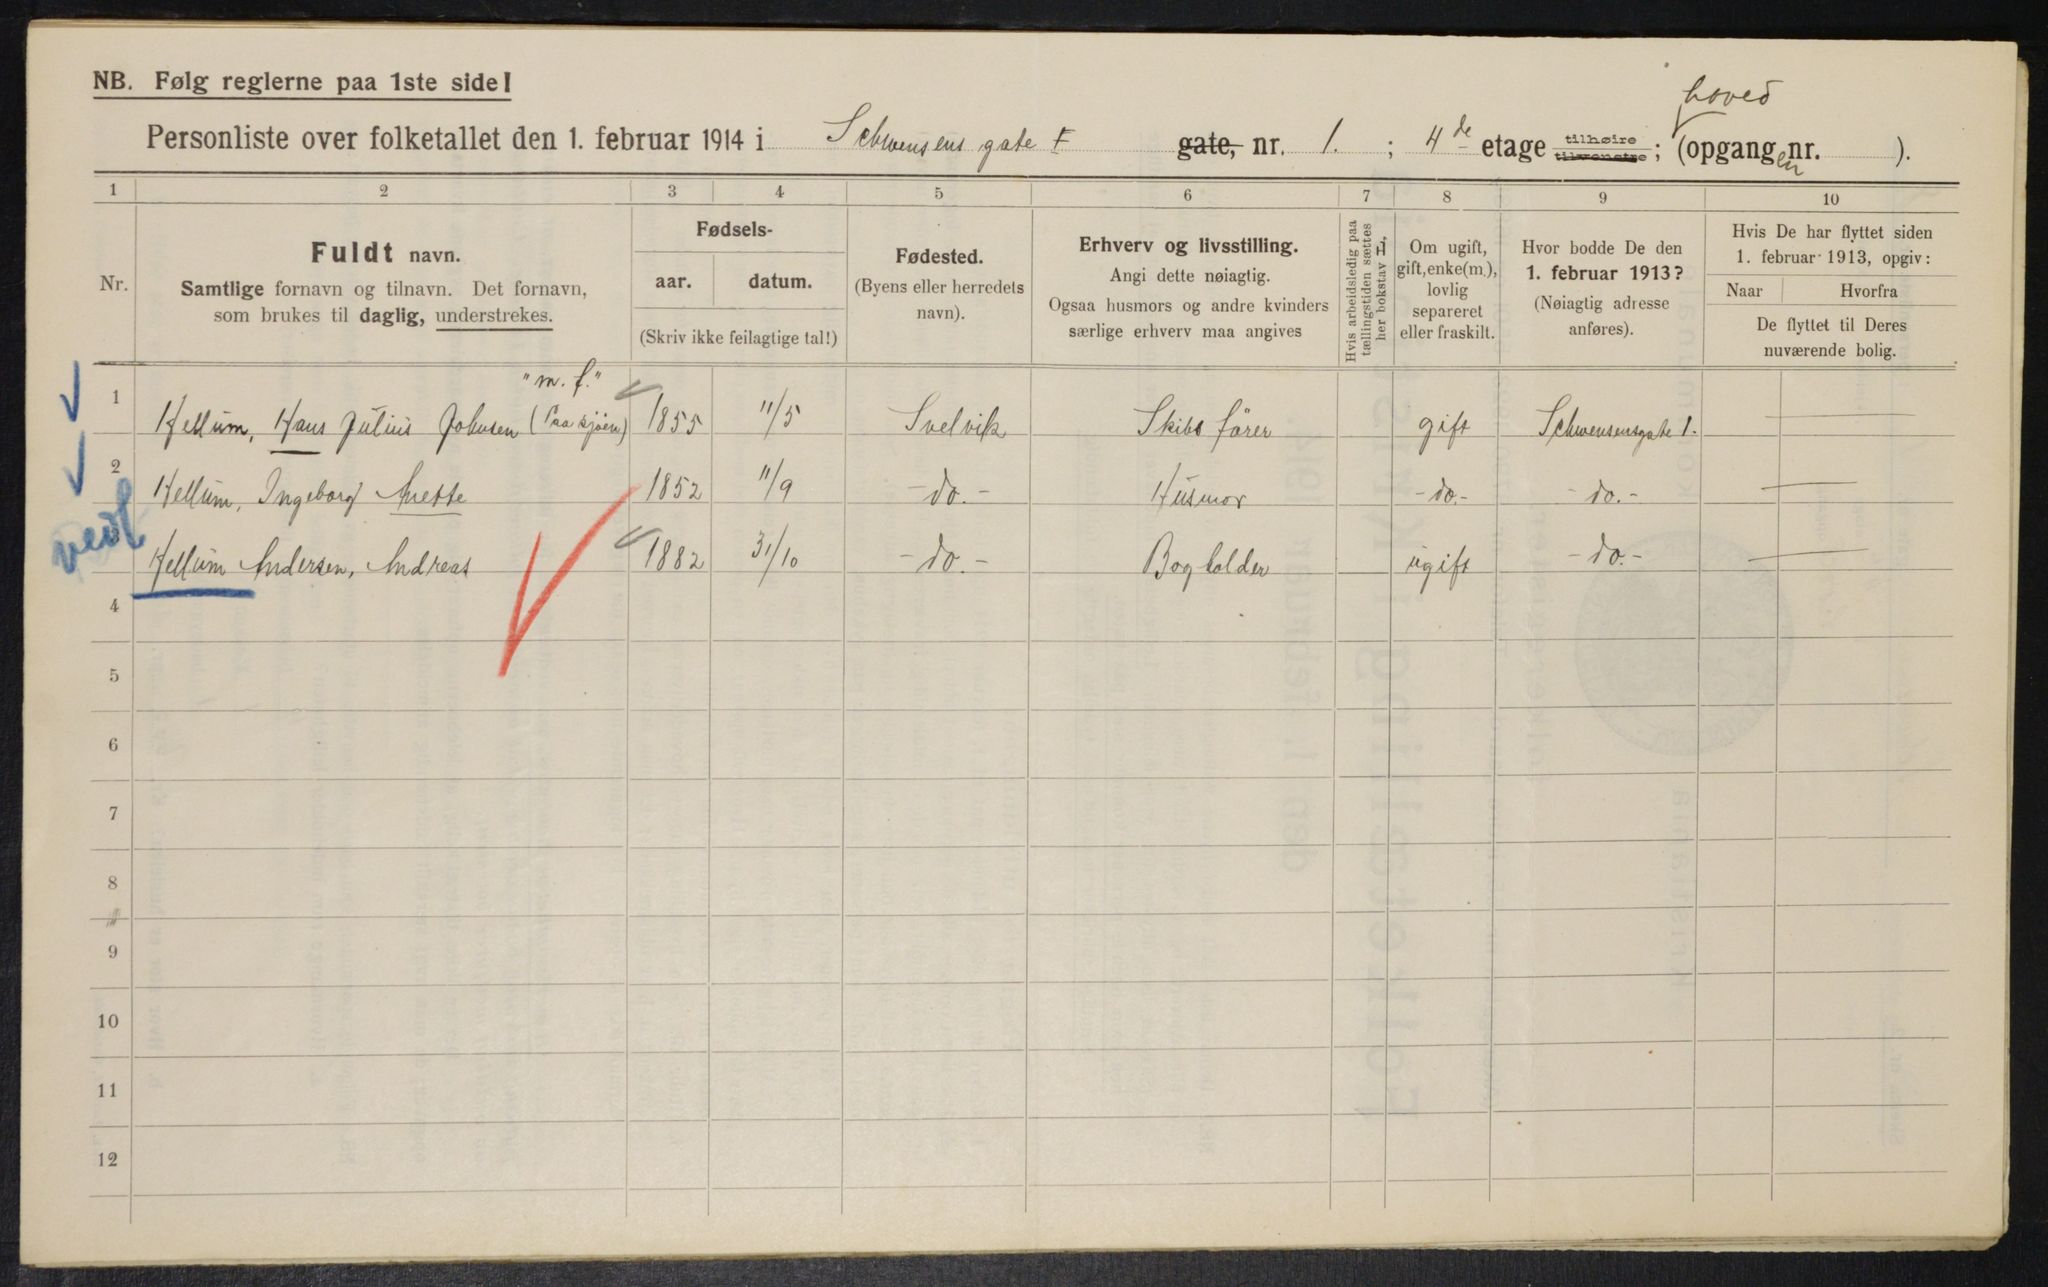 NB. Følg reglerne paa 1ste side!
hoved
Personliste over folketallet den 1. februar 1914 i Schwensens gate gate, nr. 1. ; 4de etage tilhøire tilvenstre ; (opgangen nr. ).
1 2 3 4 5 6 7 8 9 10
Nr.
Fuldt navn.
Samtlige fornavn og tilnavn. Det fornavn,
som brukes til daglig, understrekes.
Fødsels-
aar. datum.
(Skriv ikke feilagtige tal!)
Fødested.
(Byens eller herredets
navn).
Erhverv og livsstilling.
Angi dette nøiagtig.
Ogsaa husmors og andre kvinders
særlige erhverv maa angives
Hvis arbeidsledig paa
tællingstiden sættes
her bokstav L,
Om ugift,
gift, enke(m.),
lovlig
separeret
eller fraskilt.
Hvor bodde De den
1. februar 1913?
(Nøiagtig adresse
anføres).
Hvis De har flyttet siden
1. februar 1913, opgiv:
Naar Hvorfra
De flyttet til Deres
nuværende bolig.
"m. f."
1 Hellum, Hans Julius Johnsen (Paa sjøen) 1855 11/5 Svelvik Skibsfører gift Schwensensgate 1. —
2 Hellum, Ingeborg Anette 1852 11/9 -do.- Husmor -do.- -do.- —
Hellum Andersen, Andreas 1882 31/10 -do.- Bogholder ugift -do.- —
4
5
6
7
8
9
10
11
12